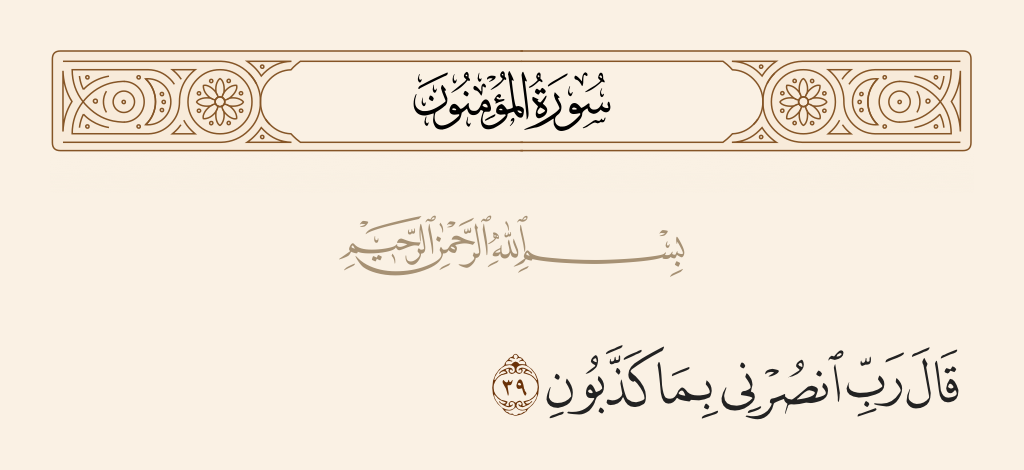 سُورَةُ الْمُؤْمِنُونَ
بِسْمِ ٱللَّهِ ٱلرَّحْمَٰنِ ٱلرَّحِيمِ
قَالَ رَبِّ ٱنصُرْنِى بِمَا كَذَّبُونِ ٣٩